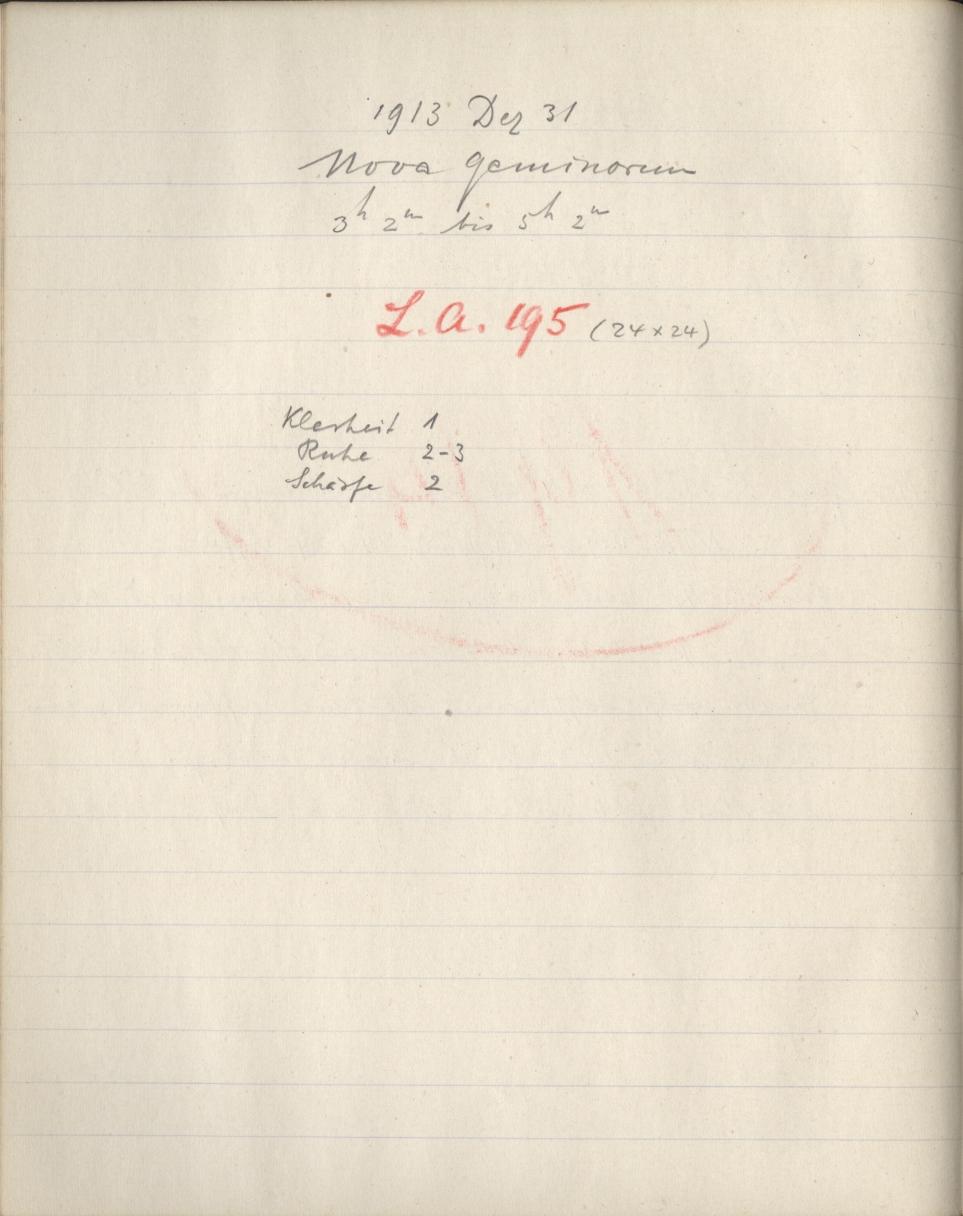 1913 Dez 31
Nova Geminorum
3h 2m bis 5h 2m
L.A. 195 (24x24)
Klarheit 1
Ruhe 2-3
Schärfe 2